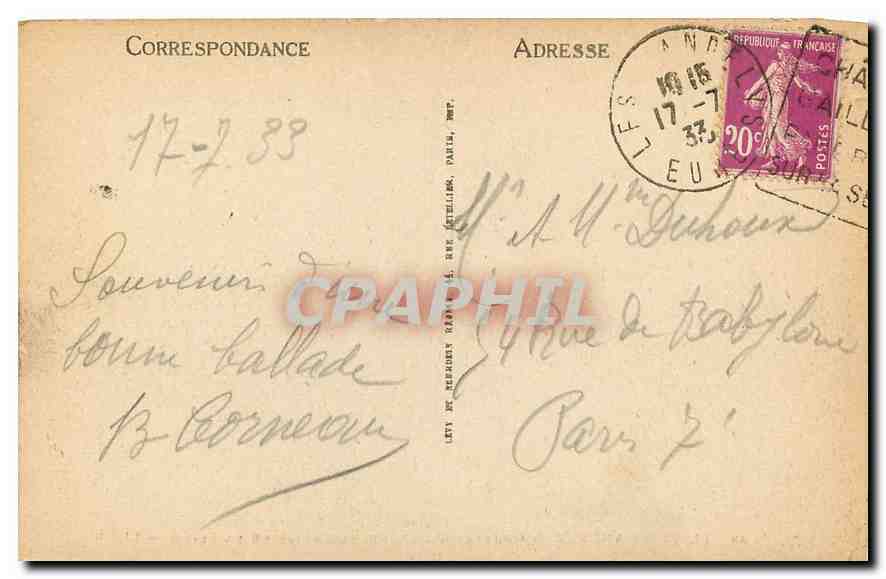 CORRESPONDANCE
ADRESSE
LES ANDELYS
10 15
17 -7
33
EURE
RÉPUBLIQUE FRANÇAISE
20c
POSTES
CHA
GAILL
SUR SE
17-7.33
Souvenir d'une
bonne ballade
B Corneau
LÉVY ET NEURDEIN RÉUNIS 44, RUE LETELLIER, PARIS, IMP.
Mr et Mme Duhoux
54 Rue de Babylone
Paris 7e
CPAPHIL